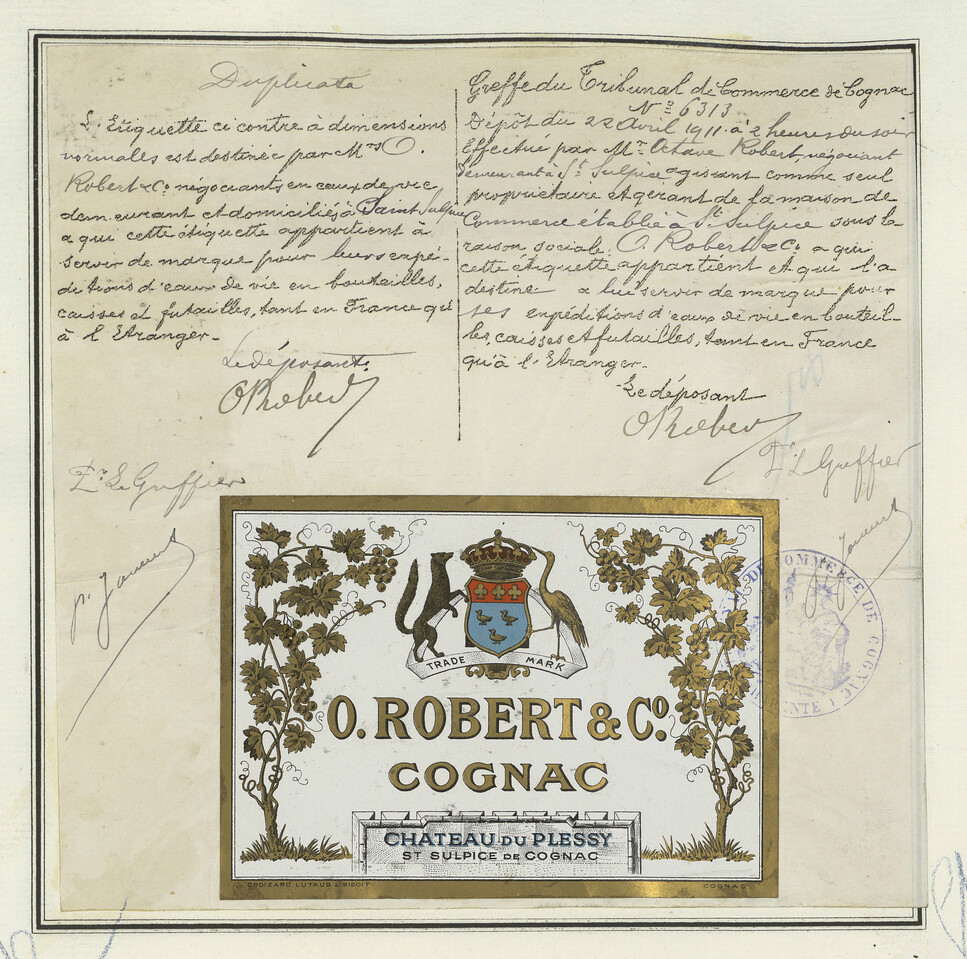 Duplicata
L'Etiquette ci contre à dimensions
normales est destinée par Mrs O.
Robert & Co négociants en eaux de vie
demeurant et domiciliés à Saint Sulpice
a qui cette étiquette appartient à
servir de marque pour leurs expé-
ditions d'eaux de vie en bouteilles,
caisses et futailles, tant en France qu'
à l'Etranger.-
Le déposant.
O Robert
Pr Le Greffier
Greffe du Tribunal de Commerce de Cognac
No 6313
Dépôt du 22 Avril 1911 à 2 heures du soir
Effectué par Mr Octave Robert, négociant
Demeurant à St Sulpice agissant comme seul
propriétaire et gérant de la maison de
Commerce établie à St Sulpice sous la
raison sociale: O. Robert & Co a qui
cette étiquette appartient et qui l'a
destine a lui servir de marque pour
ses expéditions d'eaux de vie en bouteil-
les, caisses et futailles, tant en France
qu'à l'Etranger.-
Le déposant
O Robert
Pr Le Greffier
TRADE MARK
O. ROBERT & Co.
COGNAC
CHATEAU DU PLESSY
ST SULPICE DE COGNAC
CROIZARD, LUTAUD & BIDOIT
COGNAC
DE COMMERCE DE COGNAC